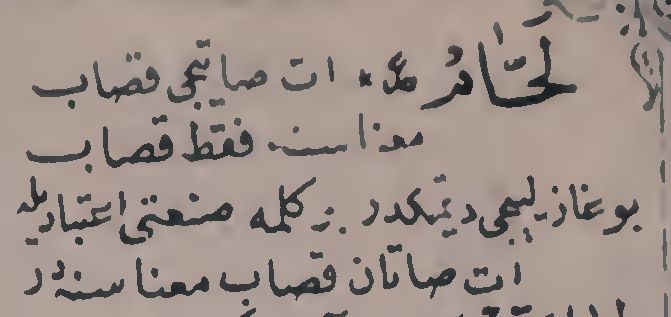 لحّامْ ات صاتیجی قصاب
معناسنه فقط قصاب
بوغازلیجی دیمکدر بو کلمه صنعتی اعتباریله
ات صاتان قصاب معناسنه در